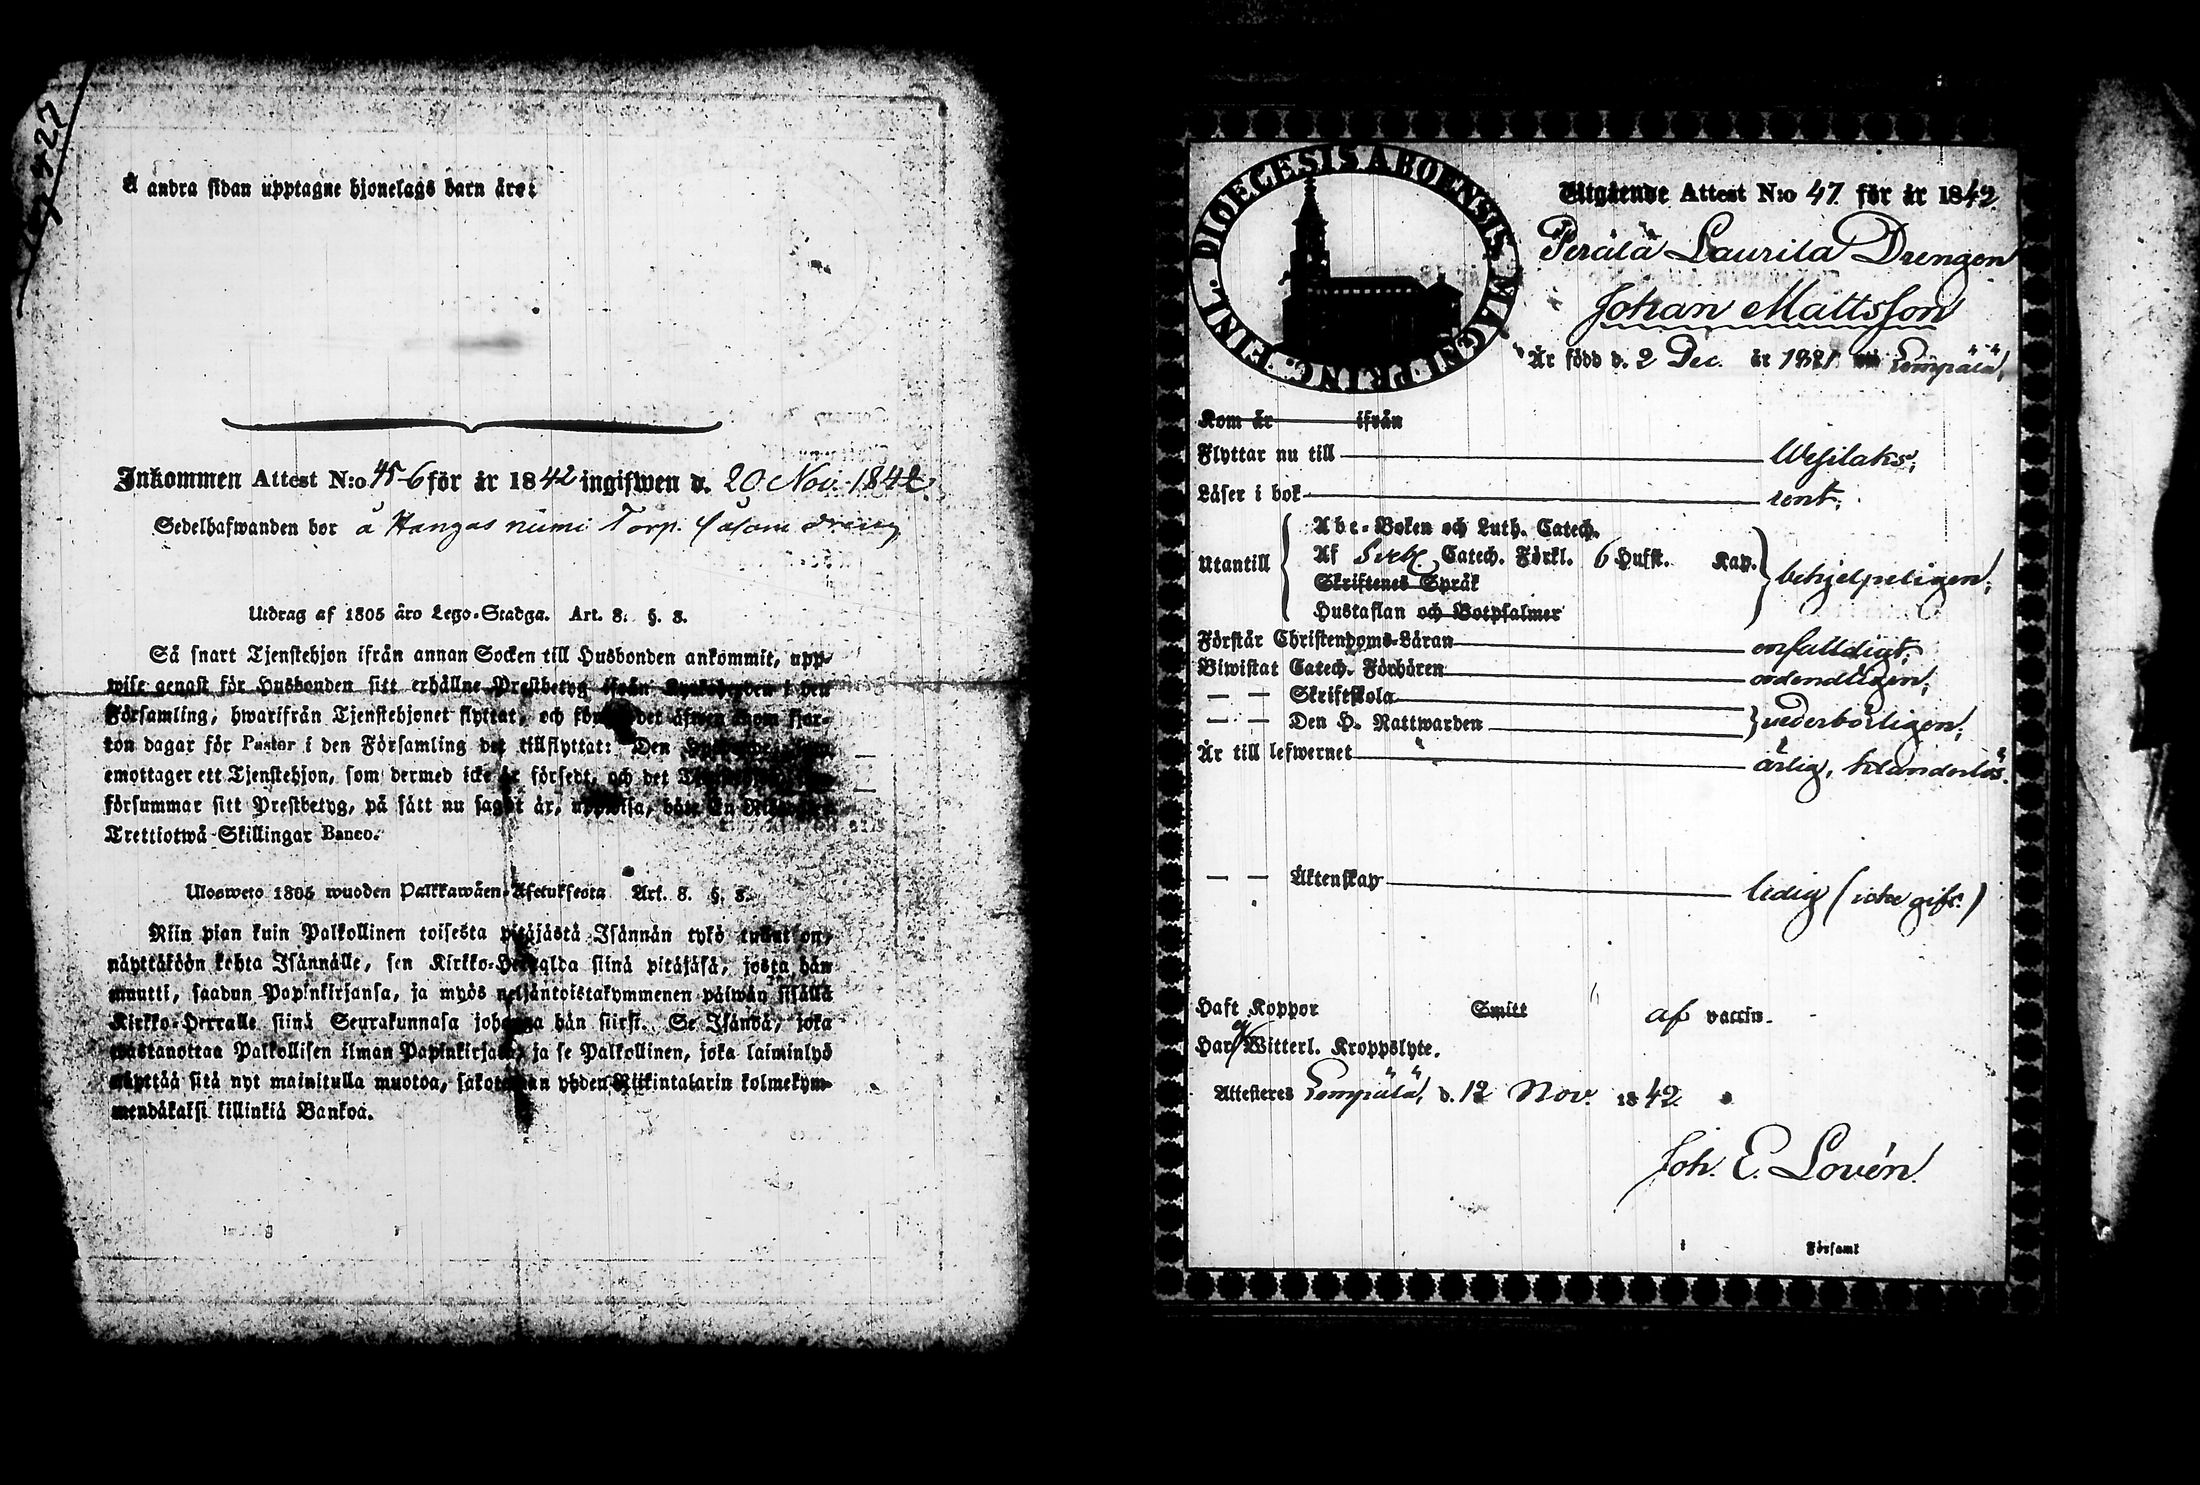 Å andra sidan upptagne hjonelags barn äro:
Inkommen Attest N:o 45-6 för år 1842 ingifwen d. 20 Nov. 1842.
Sedelhafwanden bor å Kangas niemi Torp. såsom dreng
Utdrag af 1805 års Lego-Stadga. Art. 8. §. 8.
Så snart Tjenstehjon ifrån annan Socken till Husbonden ankommit, upp-
wise genast för Husbonden sitt erhållne Prestbetyg ifrån Kyrkoherden i den
Församling, hwarifrån Tjenstehjonet flyttat, och det äfwen inom fjor-
ton dagar för Pastor i den Församling det tillflyttat: Den
emottager ett Tjenstehjon, som dermed icke är försedt, och det
försummar sitt Prestbetyg, på sätt nu sagdt är, uppwisa, böte En
Trettiotwå Skillingar Banco.
Ulosweto 1805 wuoden Palkkawäen-Asetuksesta Art. 8. §. 8.
Niin pian kuin Palkollinen toisesta pitäjästä Isännän tykö tullut on,
näyttäköön kohta Isännälle, sen Kirkko-Herralda siinä pitäjäsä, josta hän
muutti, saadun Papinkirjansa, ja myös neljäntoistakymmenen päiwän sisällä
Kirkko-Herralle siinä Seurakunnasa johonga hän siirsi. Se Isändä, joka
wastanottaa Palkollisen ilman Papinkirjata, ja se Palkollinen, joka laiminlyö
näyttää sitä nyt mainitulla muotoa, sakotetaan yhden Riikintalarin kolmekym-
mendäkaksi killinkiä Bankoa.
DIOECESIS ABOENSIS MAGNI PRINC. FINL.
Utgående Attest N:o 47 för år 1842.
Perälä Laurila Drengen
Johan Mattsson
Är född d. 2 Dec. år 1821 Lempäälä,
Kom år ifrån
Flyttar nu till Wesilaks,
Läser i bok rent,
Utantill
Abc-Boken och Luth. Catech.
Af Sveb. Catech. Förkl. 6 Hufst. Kap.
Skriftenes Språk
Hustaflan och Botpsalmer
behjelpeligen,
Förstår Christendoms-Läran enfalldigt,
Biwistat Catech. Förhören ordendtligen,
— — Skriftskola
— — Den H. Nattwarden wederbörligen,
Är till lefwernet ärlig, klanderlös.
— — Äktenskap ledig (icke gift.)
Haft Koppor Smitt af vaccin.
Har ej Witterl. Kroppslyte.
Attesteres Lempäälä, d. 12 Nov. 1842.
Joh. E. Lovén.
i Församl